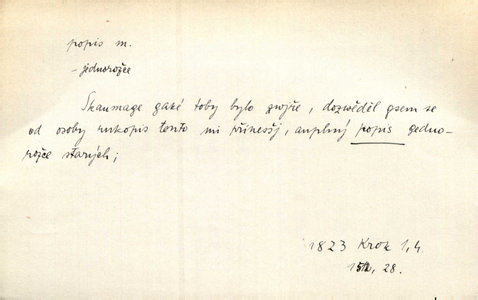 popis m.
- jednorožce
Skaumage gaké toby bylo zwjře, dozwěděl gsem se
od osoby rukopis tento mi přinesšj, auplný popis gedno-
rožce starých;
1823 Krok 1,4
28.